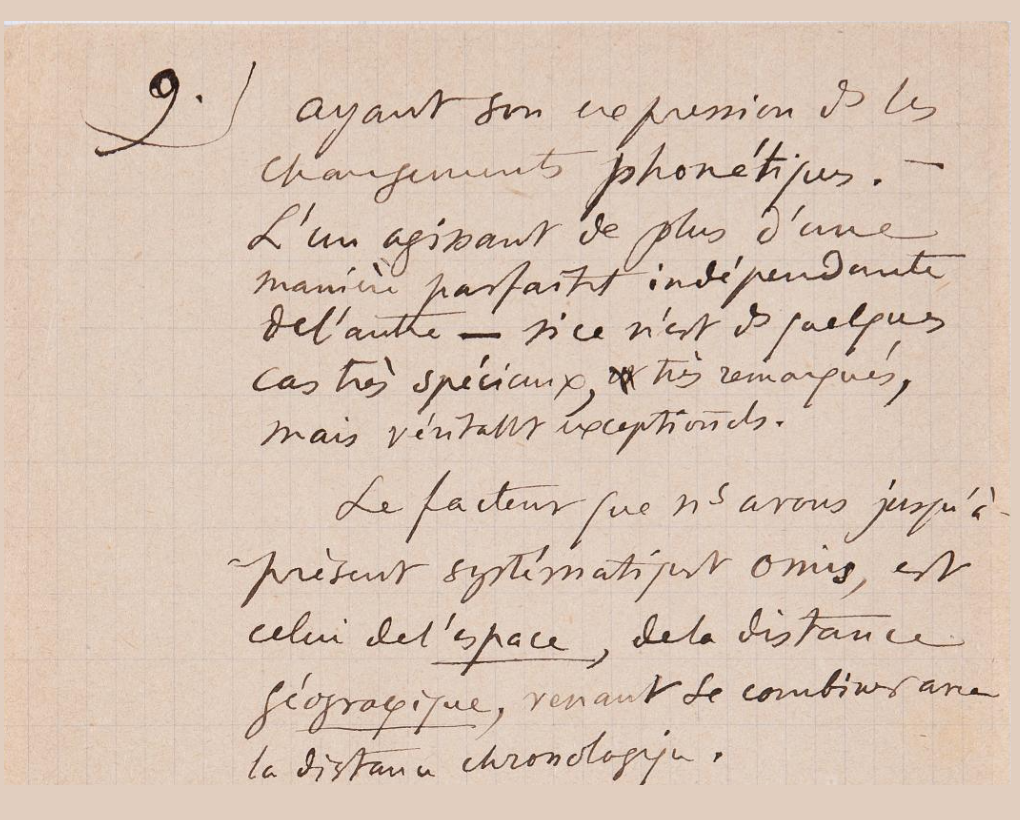 9. ayant son expression ds les
changements phonétiques. —
L'un agissant de plus d'une
manière parfaitt indépendante
de l'autre — si ce n'est ds quelques
cas très spéciaux, très remarqués,
mais véritablt exceptionels.
Le facteur que ns avons jusqu'à-
présent systématiqt omis, est
celui de l'espace, de la distance
géograφique, venant se combiner avec
la distance chronologique.